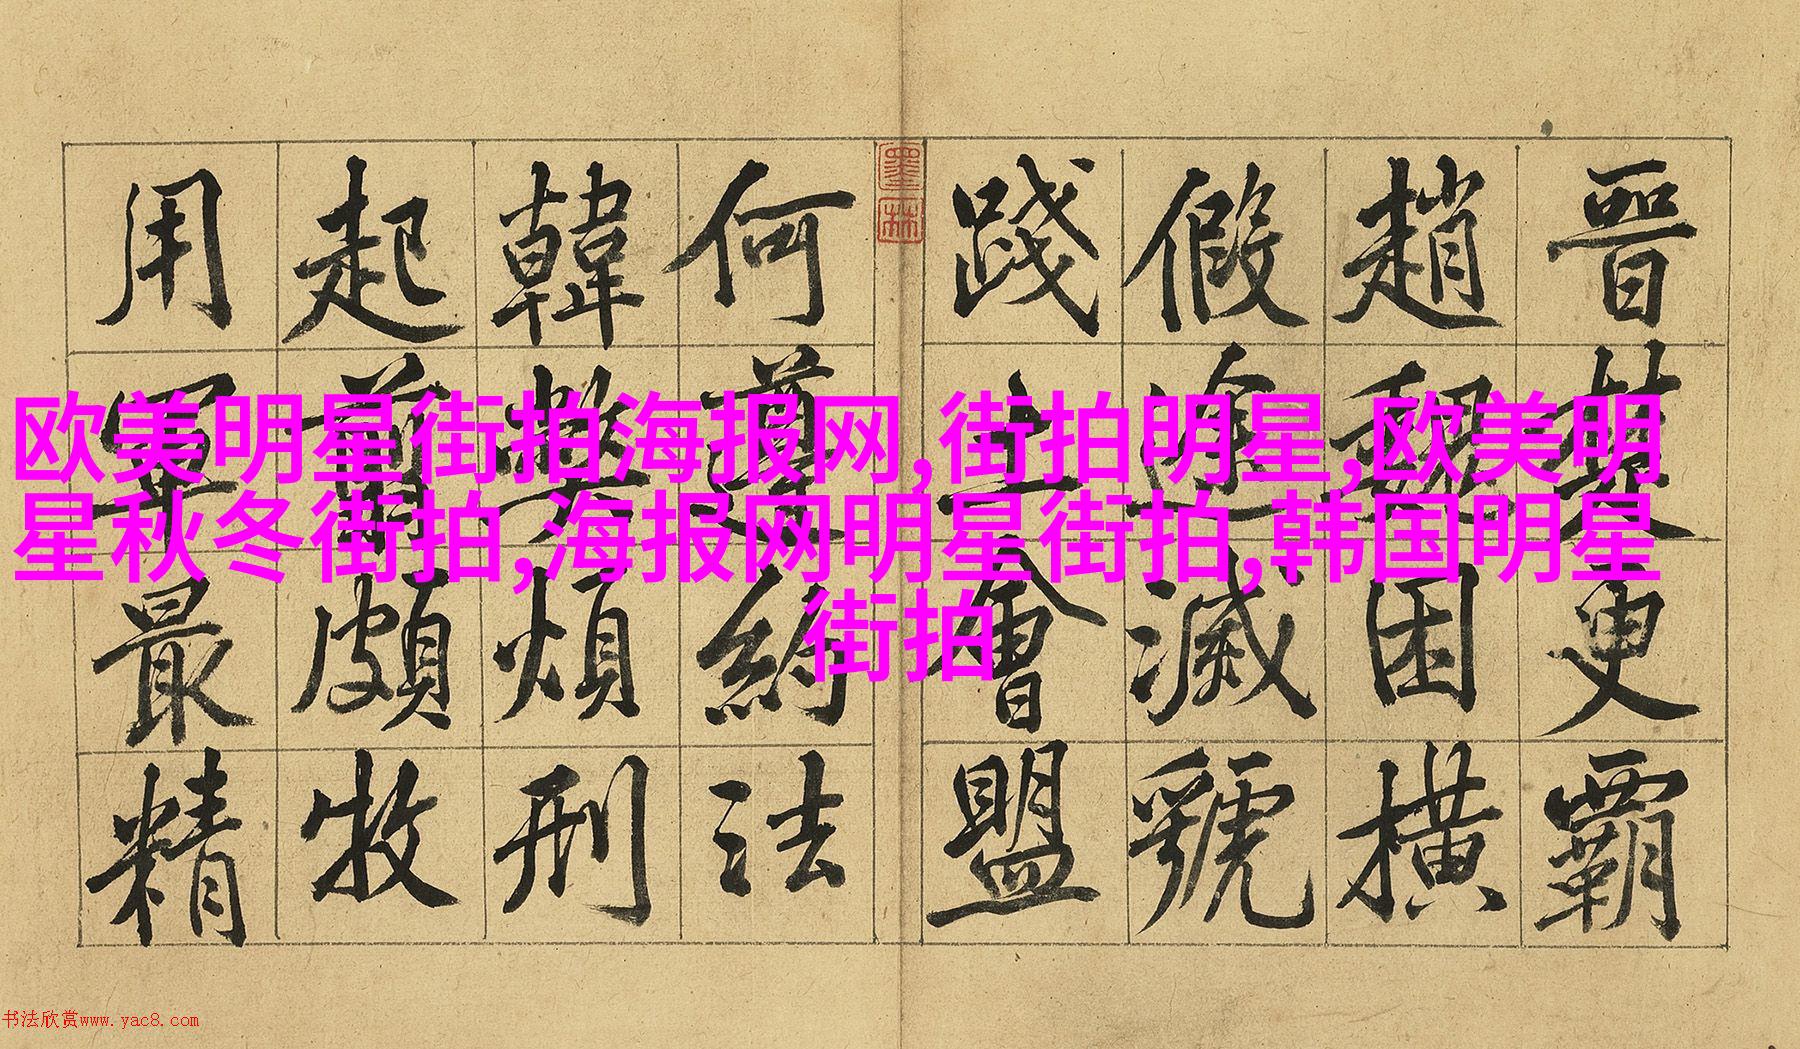 晉楚更霸
趙魏困橫
假途滅虢
踐土會盟
墨林
何遵約法
韓弊煩刑
起翦頗牧
用軍最精
欧美明星街拍海报网,街拍明星,欧美明
星秋冬街拍,海报网明星街拍,韩国明星
街拍
书法欣赏www.yac8.com